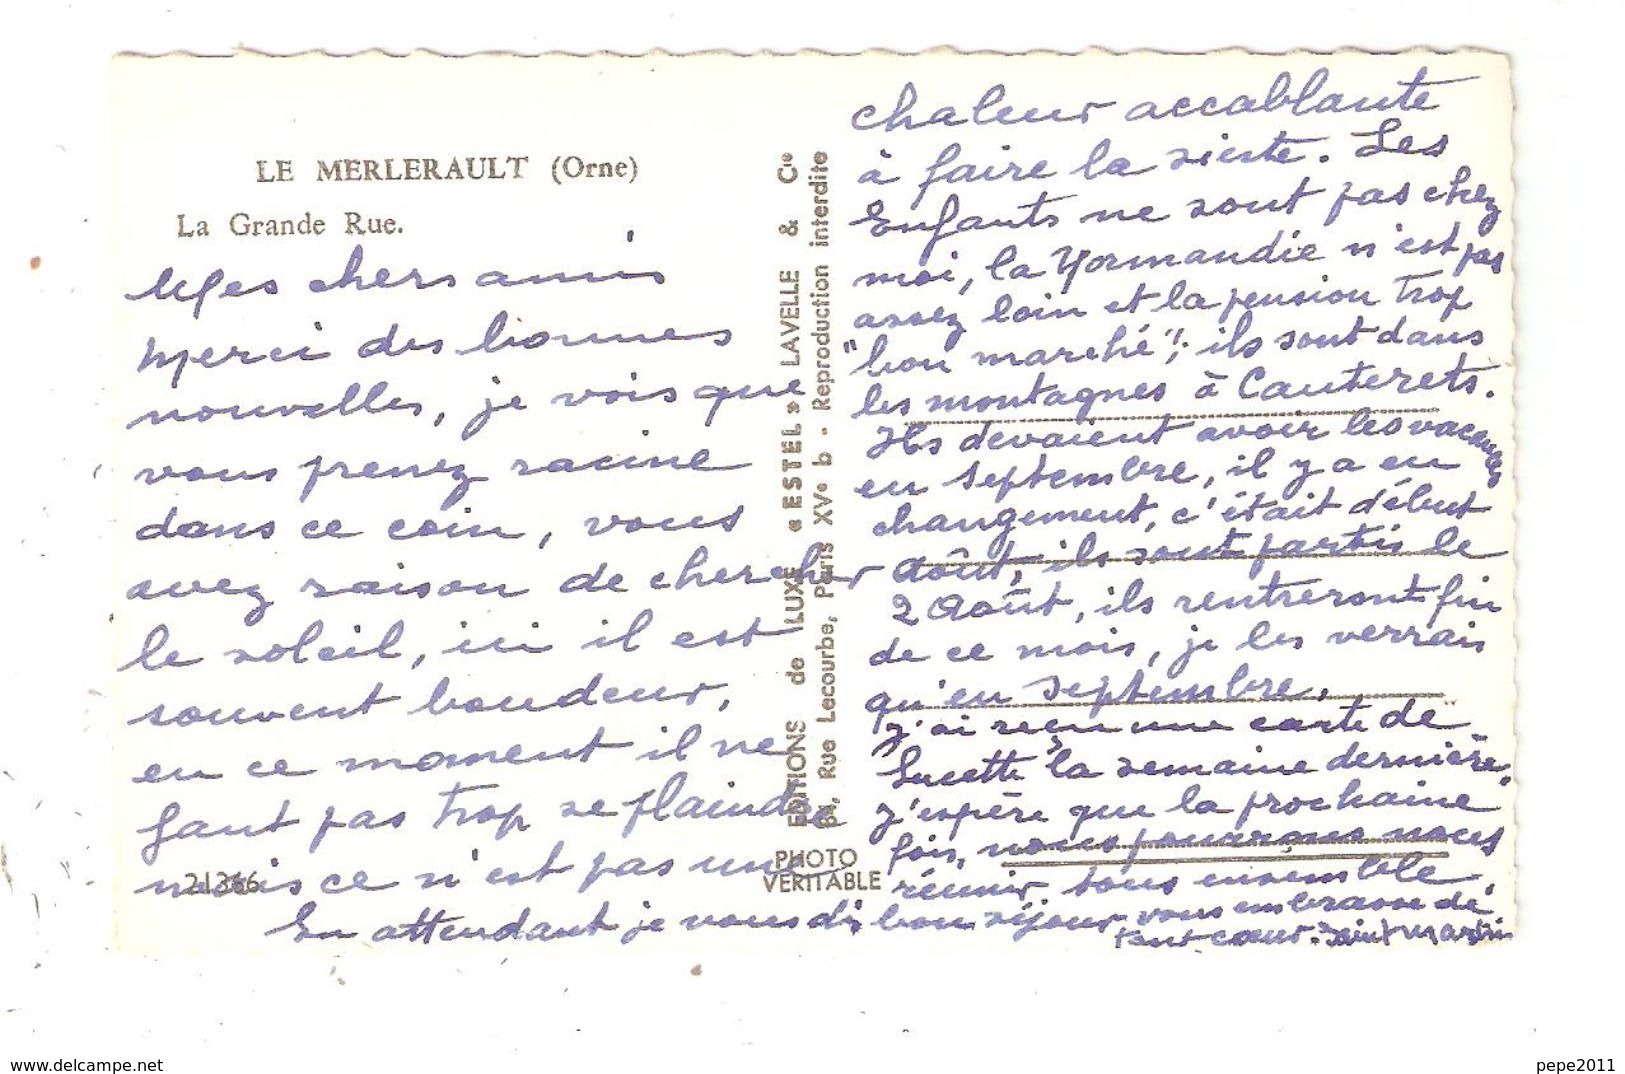 LE MERLERAULT (Orne)
La Grande Rue.
Mes chers amis
Merci des bonnes
nouvelles, je vois que
vous prenez racine
dans ce coin, vous
avez raison de chercher
le soleil, ici il est
souvent boudeur,
en ce moment il ne
faut pas trop se plaindre
mais ce n'est pas une
21366
EDITIONS de LUXE « ESTEL » LAVELLE & Cie
Rue Lecourbe, Paris XVe b - Reproduction interdite
PHOTO
VERITABLE
chaleur accablante
à faire la sieste. Les
Enfants ne sont pas chez
moi, la Normandie n'est pas
assez loin et la pension trop
"bon marché"; ils sont dans
les montagnes à Cauterets.
Ils devaient avoir les vacances
en septembre, il y a eu
changement, c'était début
Août, ils sont partis le
2 Août, ils rentreront fin
de ce mois, je les verrais
qu'en septembre.
J'ai reçu une carte de
Lucette la semaine dernière,
j'espère que la prochaine
fois, nous pourrons nous
réunir, tous ensemble.
En attendant je vous dis bon séjour, vous embrasse de
tout cœur. Saint Martin
delcampe.net
pepe2011